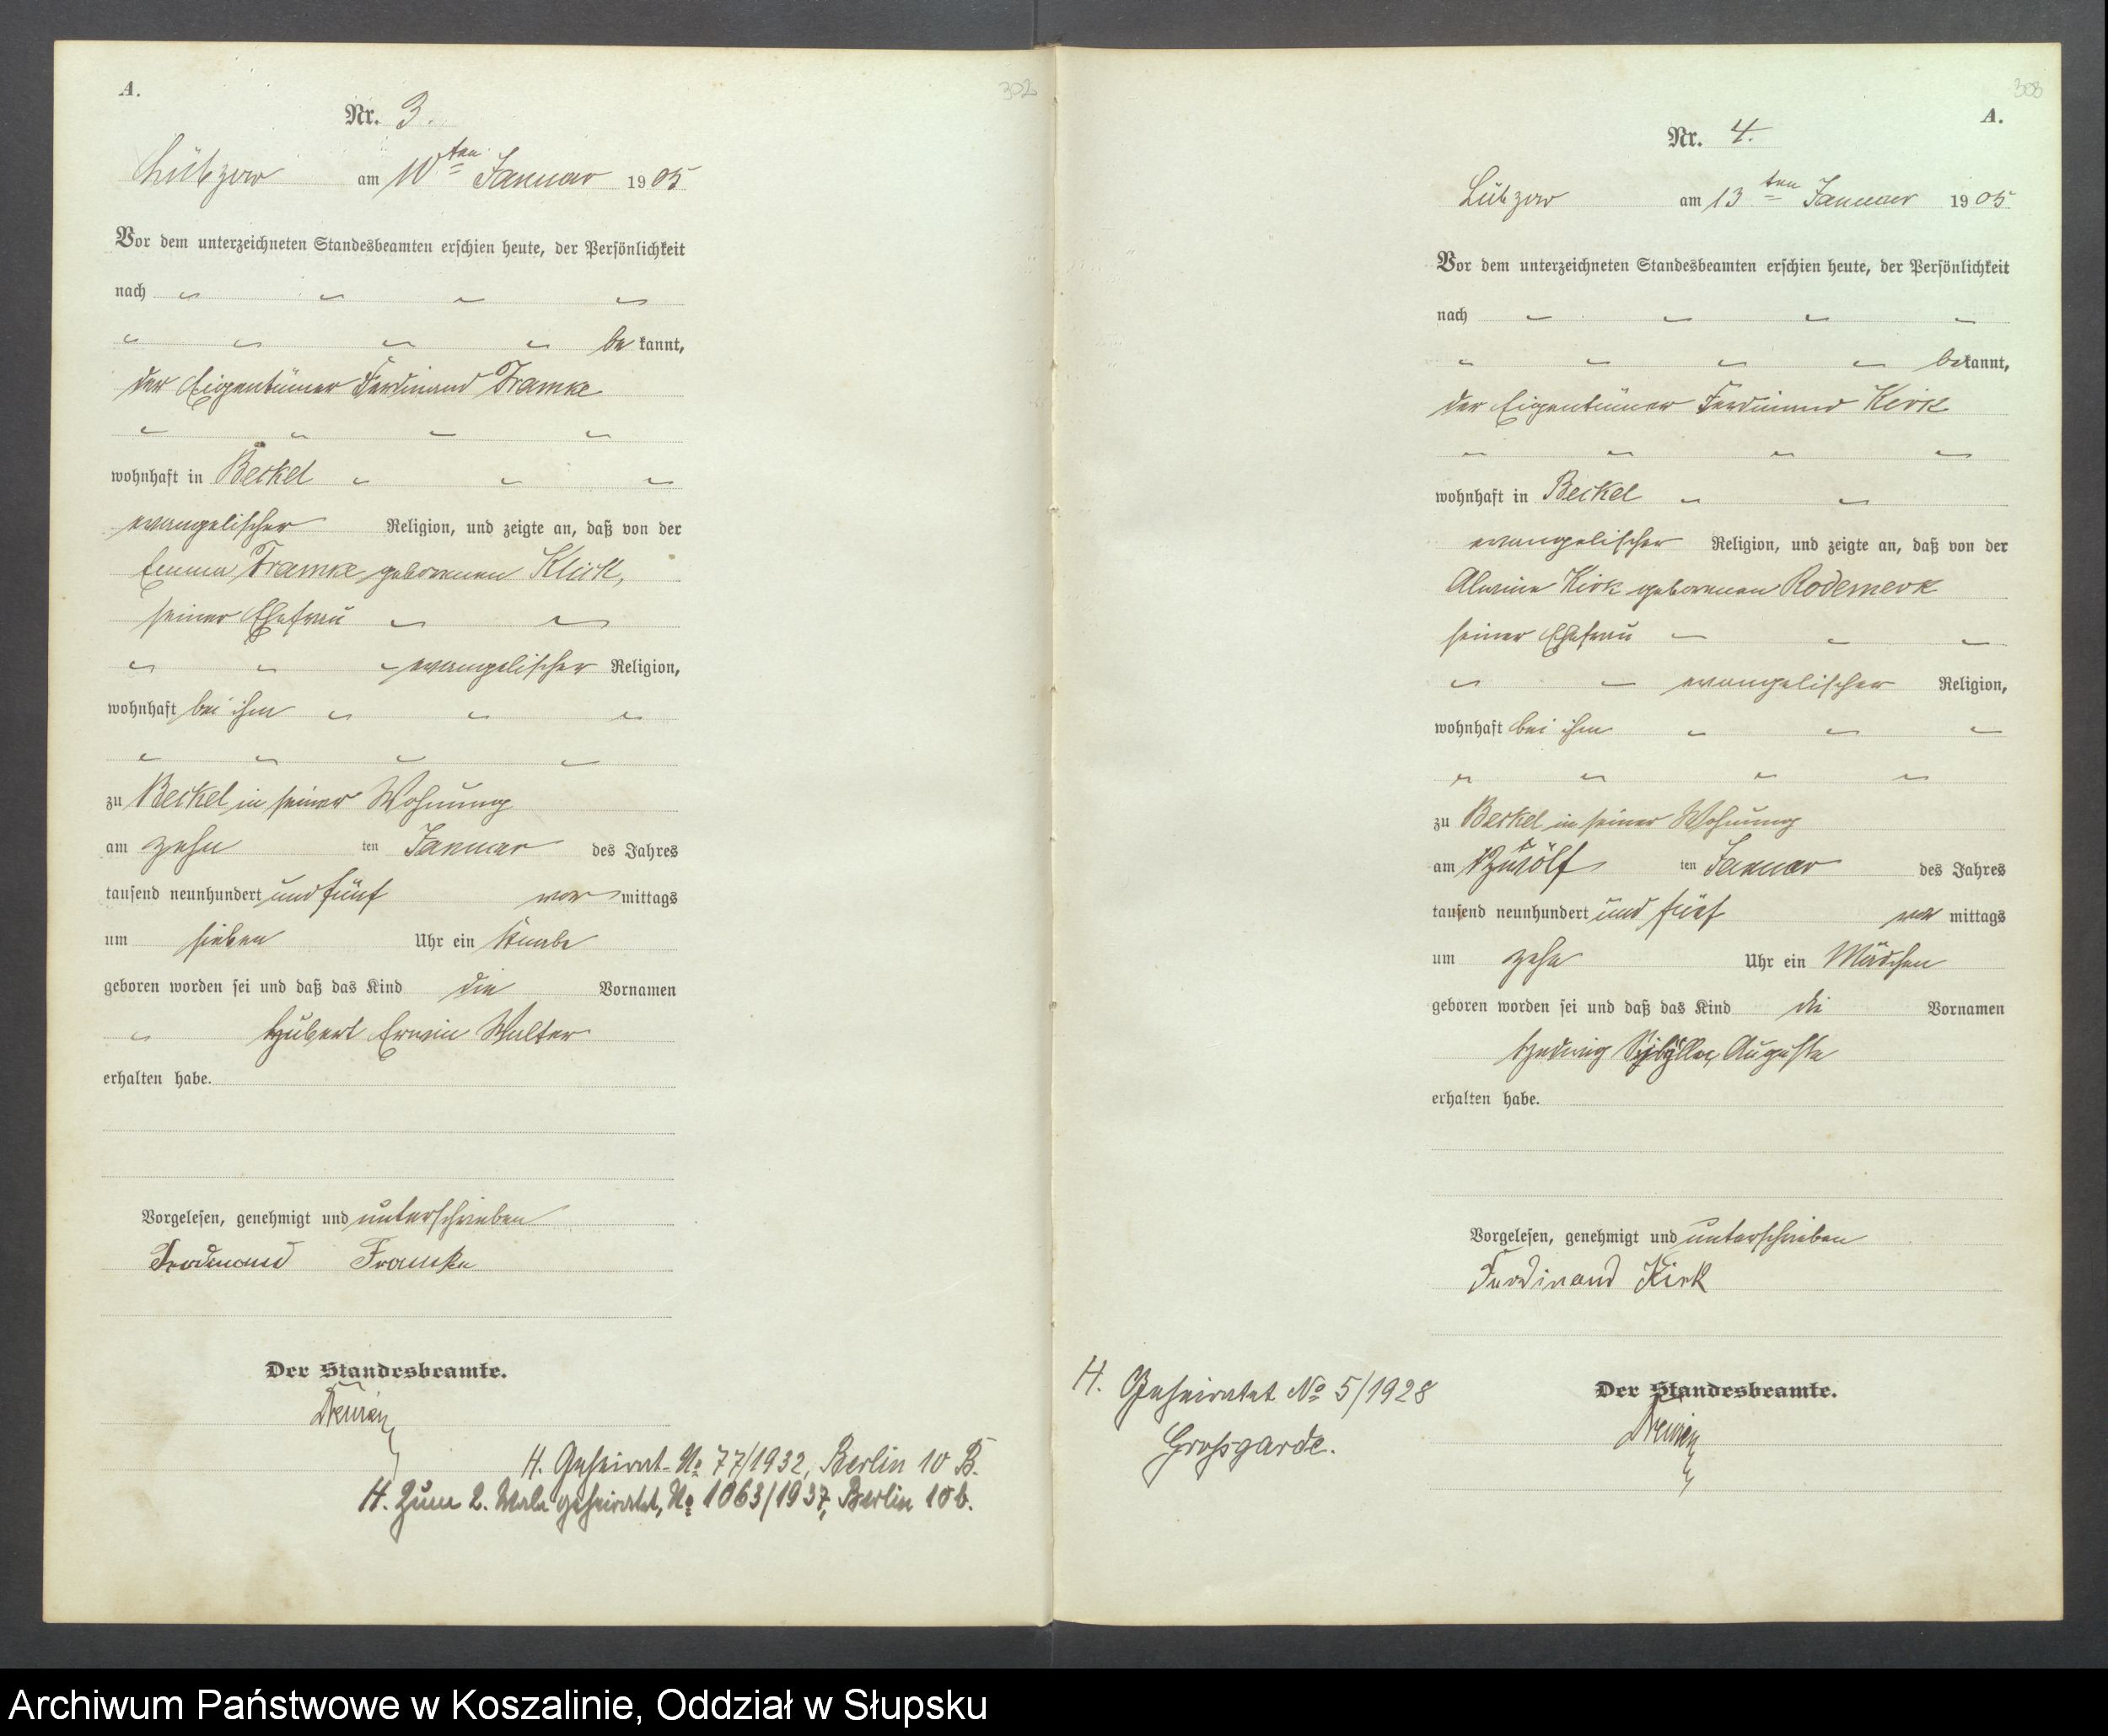 A.
302
Nr. 3.
Lübzow am 10ten Januar 1905
Vor dem unterzeichneten Standesbeamten erschien heute, der Persönlichkeit
nach
be kannt,
der Eigentümer Ferdinand Framke
wohnhaft in Beckel
evangelischer Religion, und zeigte an, daß von der
Emma Framke geborenen Klick,
seiner Ehefrau
evangelischer Religion,
wohnhaft bei ihm
zu Beckel in seiner Wohnung
am zehn ten Januar des Jahres
tausend neunhundert und fünf vor mittags
um sieben Uhr ein Knabe
geboren worden sei und daß das Kind die Vornamen
Hubert Erwin Walter
erhalten habe.
Vorgelesen, genehmigt und unterschrieben
Ferdinand Framke
Der Standesbeamte.
H. Geheirat. No 77/1932, Berlin 10 B.
H. Zum 2. Male geheiratet, No 1063/1937, Berlin 10b.
303
A.
Nr. 4.
Lübzow am 13ten Januar 1905
Vor dem unterzeichneten Standesbeamten erschien heute, der Persönlichkeit
nach
bekannt,
der Eigentümer Ferdinand Kirk
wohnhaft in Beckel
evangelischer Religion, und zeigte an, daß von der
Alwine Kirk geborenen Rodemerk
seiner Ehefrau
evangelischer Religion,
wohnhaft bei ihm
zu Beckel in seiner Wohnung
am zwölf ten Januar des Jahres
tausend neunhundert und fünf vor mittags
um zehn Uhr ein Mädchen
geboren worden sei und daß das Kind die Vornamen
Hedwig Sibylla, Auguste
erhalten habe.
Vorgelesen, genehmigt und unterschrieben
Ferdinand Kirk
Der Standesbeamte.
H. Geheiratet No 5/1928
Großgarde.
Archiwum Państwowe w Koszalinie, Oddział w Słupsku